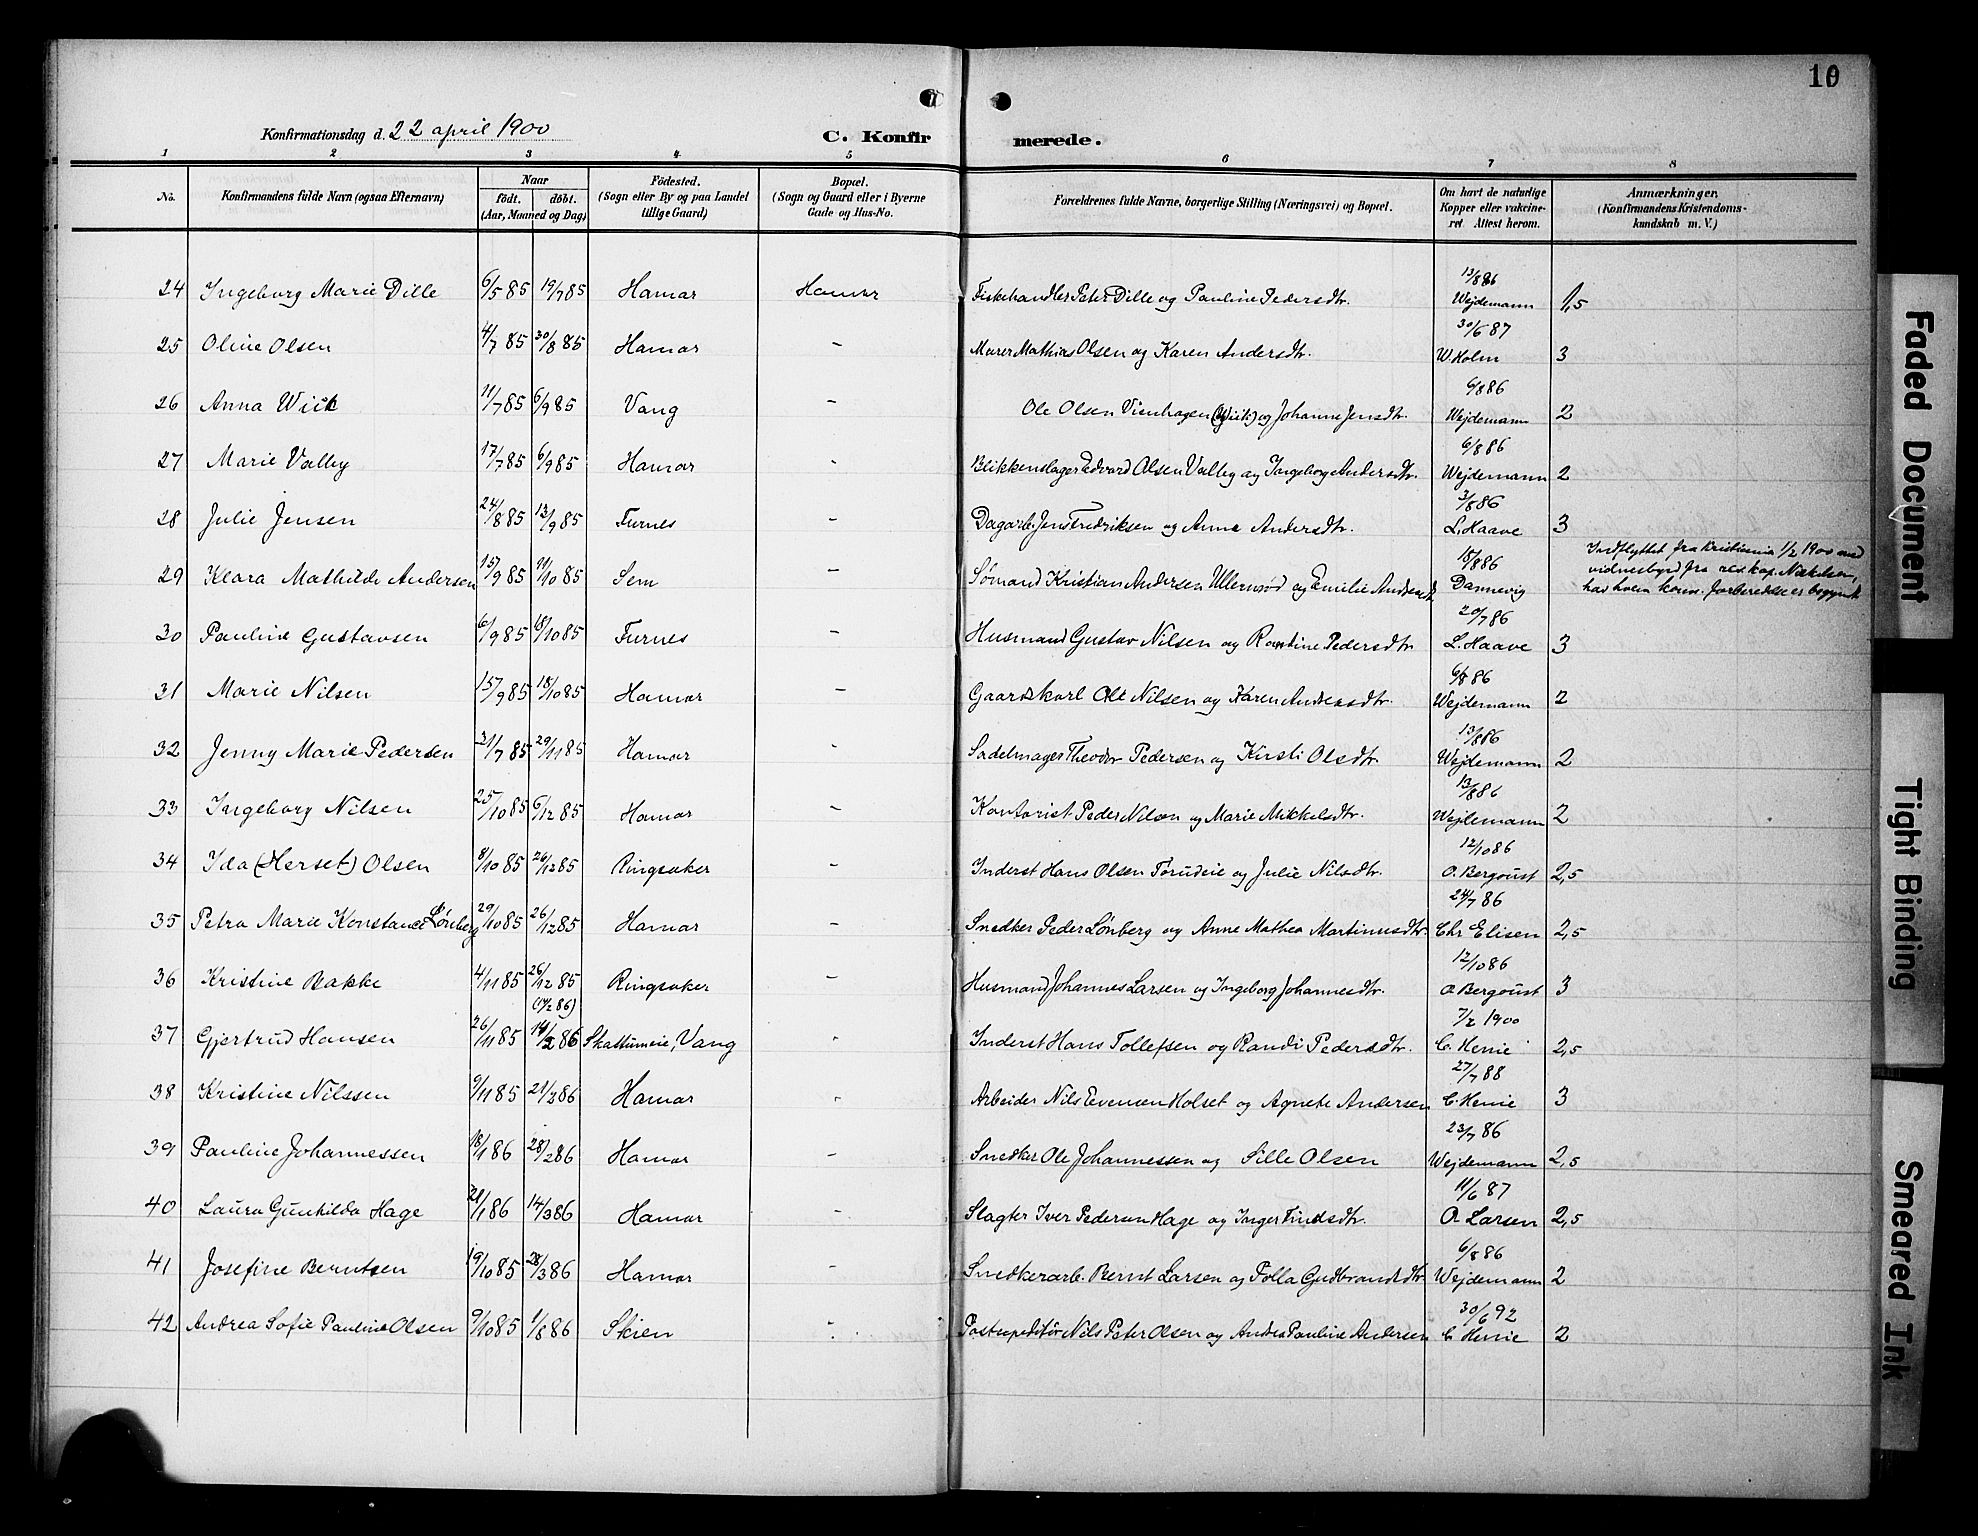 10
Konfirmationsdag d. 22 april 1900
C. Konfirmerede.
1 2 3 4 5 6 7 8
No. Konfirmandens fulde Navn (ogsaa Efternavn) Naar født. døbt. (Aar, Maaned og Dag) Fødested. (Sogn eller By og paa Landet tillige Gaard) Bopæl. (Sogn og Gaard eller i Byerne Gade og Hus-No. Forældrenes fulde Navne, borgerlige Stilling (Næringsvei) og Bopæl. Om havt de naturlige Kopper eller vakcineret Attest herom. Anmærkninger. (Konfirmandens Kristendomskundskab m. V.)
24 Ingeborg Marie Dille 6/5 85 19/7 85 Hamar Hamar Fiskehandler Peter Dille og Pauline Pedersdtr. 13/8 86 Wejdemann 1,5
25 Oline Olsen 4/7 85 30/8 85 Hamar – Murer Mathias Olsen og Karen Andersdtr. 30/6 87 W. Holm 3
26 Anna Wiik 11/7 85 6/9 85 Vang – Ole Olsen Vienhagen (Wiik) og Johanne Jensdtr. 6/8 86 Wejdemann 2
27 Marie Valby 17/7 85 6/9 85 Hamar - Blikkenslager Edvard Olsen Valby og Ingeborg Andersdtr. 6/8 86 Wejdemann 2
28 Julie Jensen 24/8 85 13/9 85 Furnes – Dagarb. Jens Fredriksen og Anne Andersdtr. 3/8 86 L. Haave 3
29 Klara Mathilde Andersen 15/9 85 11/10 85 Sem – Sømand Kristian Andersen Ullernrød og Emilie Andersdtr. 18/8 86 Dannevig Indflyttet fra Kristiania 1/2 1900 med vidnesbyrd fra res. kap. Nikelsen, har hvem konf. forberedelse er begyndt
30 Pauline Gustavsen 6/9 85 18/10 85 Furnes – Husmand Gustav Nilsen og Rontine Pedersdtr. 20/7 86 L. Haave 3
31 Marie Nilsen 15/9 85 18/10 85 Hamar – Gaardskarl Ole Nilsen og Karen Andersdtr. 6/8 86 Wejdemann 2
32 Jenny Marie Pedersen 31/7 85 29/11 85 Hamar - Sadelmager Theodor Pedersen og Kirsti Olsdtr. 13/8 86 Wejdemann 2
33 Ingeborg Nilsen 25/10 85 6/12 85 Hamar – Kontorist Peder Nilsen og Marie Mikkelsdtr. 13/8 86 Wejdemann 2
34 Ida (Herset) Olsen 8/10 85 26/12 85 Ringsaker – Inderst Hans Olsen Torudeie og Julie Nilsdtr. 12/10 86 O. Bergoust 2,5
35 Petra Marie Konstance Lønberg 29/10 85 26/12 85 Hamar – Snedker Peder Lønberg og Anne Mathea Martinusdtr. 24/7 86 Chr Elisen 2,5
36 Kristine Bakke 4/11 85 26/12 85 Ringsaker – Husmand Johannes Larsen og Ingeborg Johannesdtr. 12/10 86 O. Bergoust 3
37 Gjertrud Hansen 26/11 85 (14/2 86) 14/2 86 Skattumeie, Vang - Inderst Hans Tollefsen og Randi Pedersdtr. 7/2 1900 C. Henie 2,5
38 Kristine Nilssen 9/11 85 21/2 86 Hamar - Arbeider Nils Evensen Holset og Agnete Andersen 27/7 88 C. Henie 3
39 Pauline Johannessen 18/1 86 28/2 86 Hamar – Snedker Ole Johannessen og Sille Olsen 23/7 86 Wejdemann 2,5
40 Laura Gunhilda Hage 21/1 86 14/3 86 Hamar – Slagter Iver Pedersen Hage og Inger Findsdtr. 11/6 87 O. Larsen 2,5
41 Josefine Berntsen 19/10 85 28/3 86 Hamar – Snedkerarb. Bernt Larsen og Tolla Gudbrandsdtr. 6/8 86 Wejdemann 2
42 Andrea Sofie Pauline Olsen 9/10 85 1/8 86 Skien - Postexpeditør Nils Peter Olsen og Andrea Pauline Andersen 30/6 92 C Henie 2
Faded Document
Tight Binding
Smeared Ink